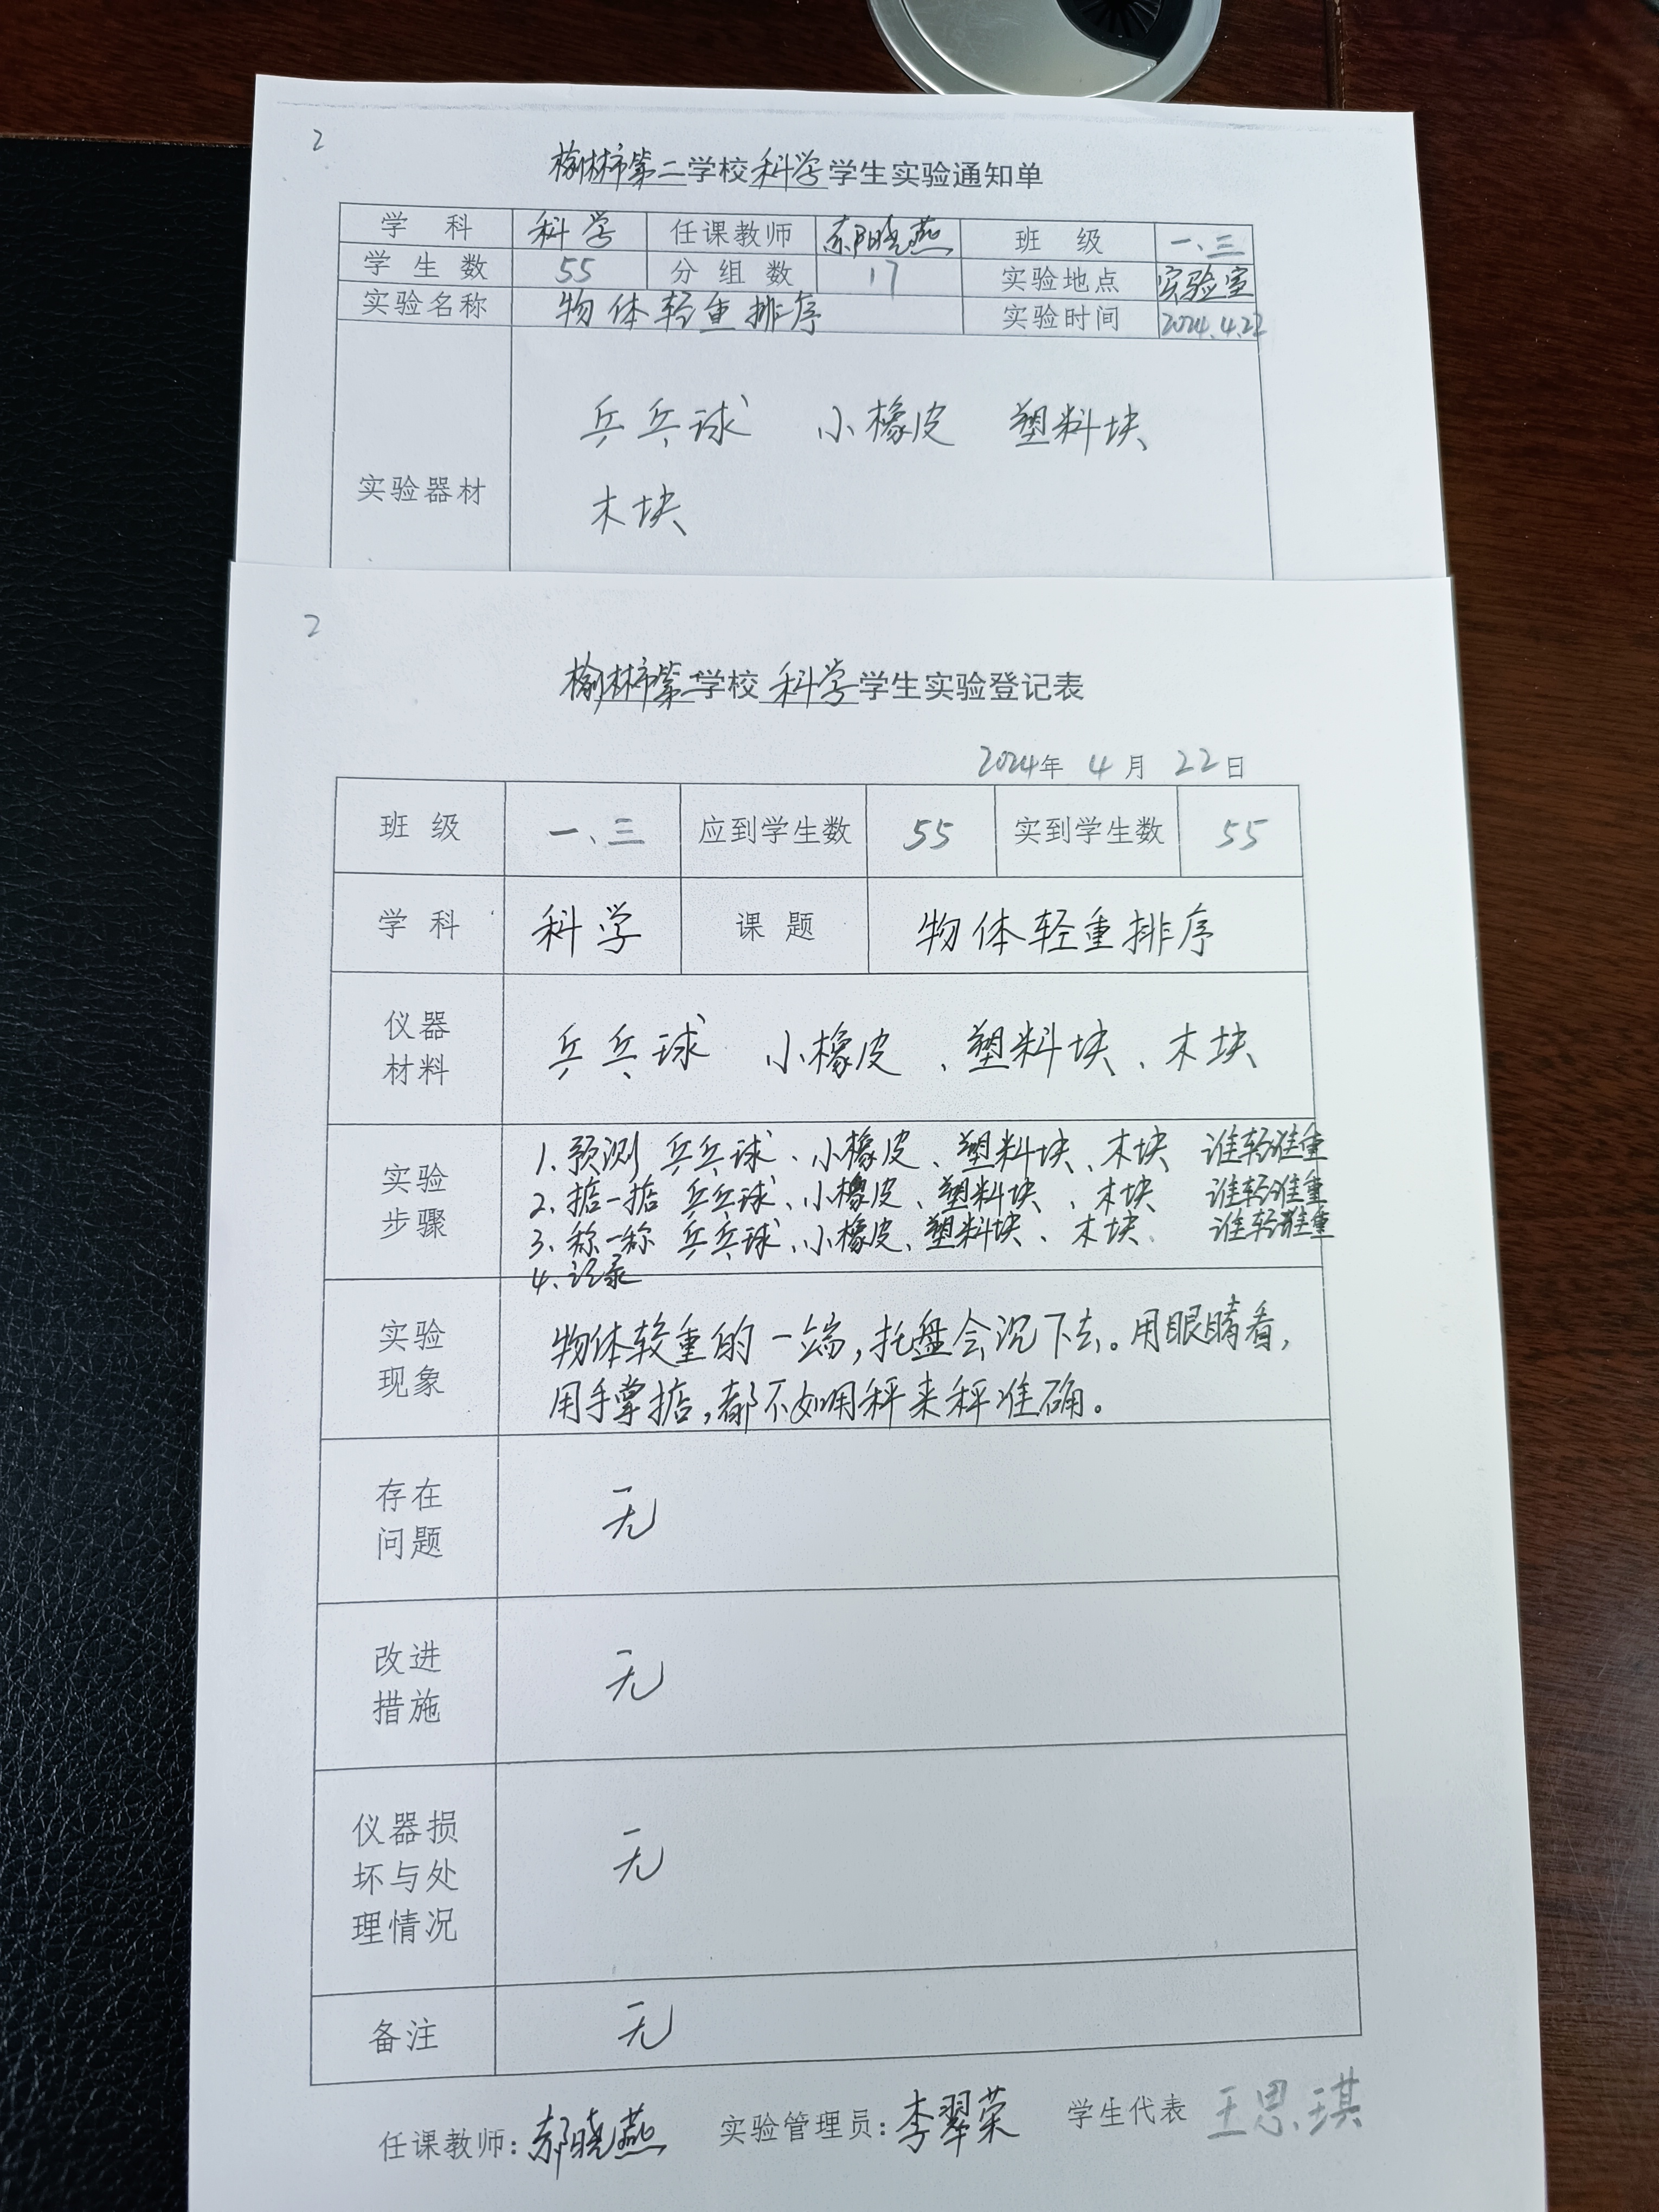 2
榆林市第二学校科学学生实验通知单
学 科 科学 任课教师 郝晓燕 班 级 一、三
学 生 数 55 分 组 数 17 实验地点 实验室
实验名称 物体轻重排序 实验时间 2024.4.22
乒乓球 小橡皮 塑料块
实验器材
木块
2
榆林市第二学校科学学生实验登记表
2024年 4月 22日
班 级 一、三 应到学生数 55 实到学生数 55
学 科 科学 课 题 物体轻重排序
仪器
材料
乒乓球 小橡皮、塑料块、木块
实验
步骤
1.预测 乒乓球、小橡皮、塑料块、木块 谁轻谁重
2.掂一掂 乒乓球、小橡皮、塑料块、木块 谁轻谁重
3.称一称 乒乓球、小橡皮、塑料块、木块 谁轻谁重
4.记录
实验
现象
物体较重的一端,托盘会沉下去。用眼睛看,
用手掌掂,都不如用秤来秤准确。
存在
问题
无
改进
措施
无
仪器损
坏与处
理情况
无
备注 无
任课教师:郝晓燕 实验管理员:李翠荣 学生代表 王思琪